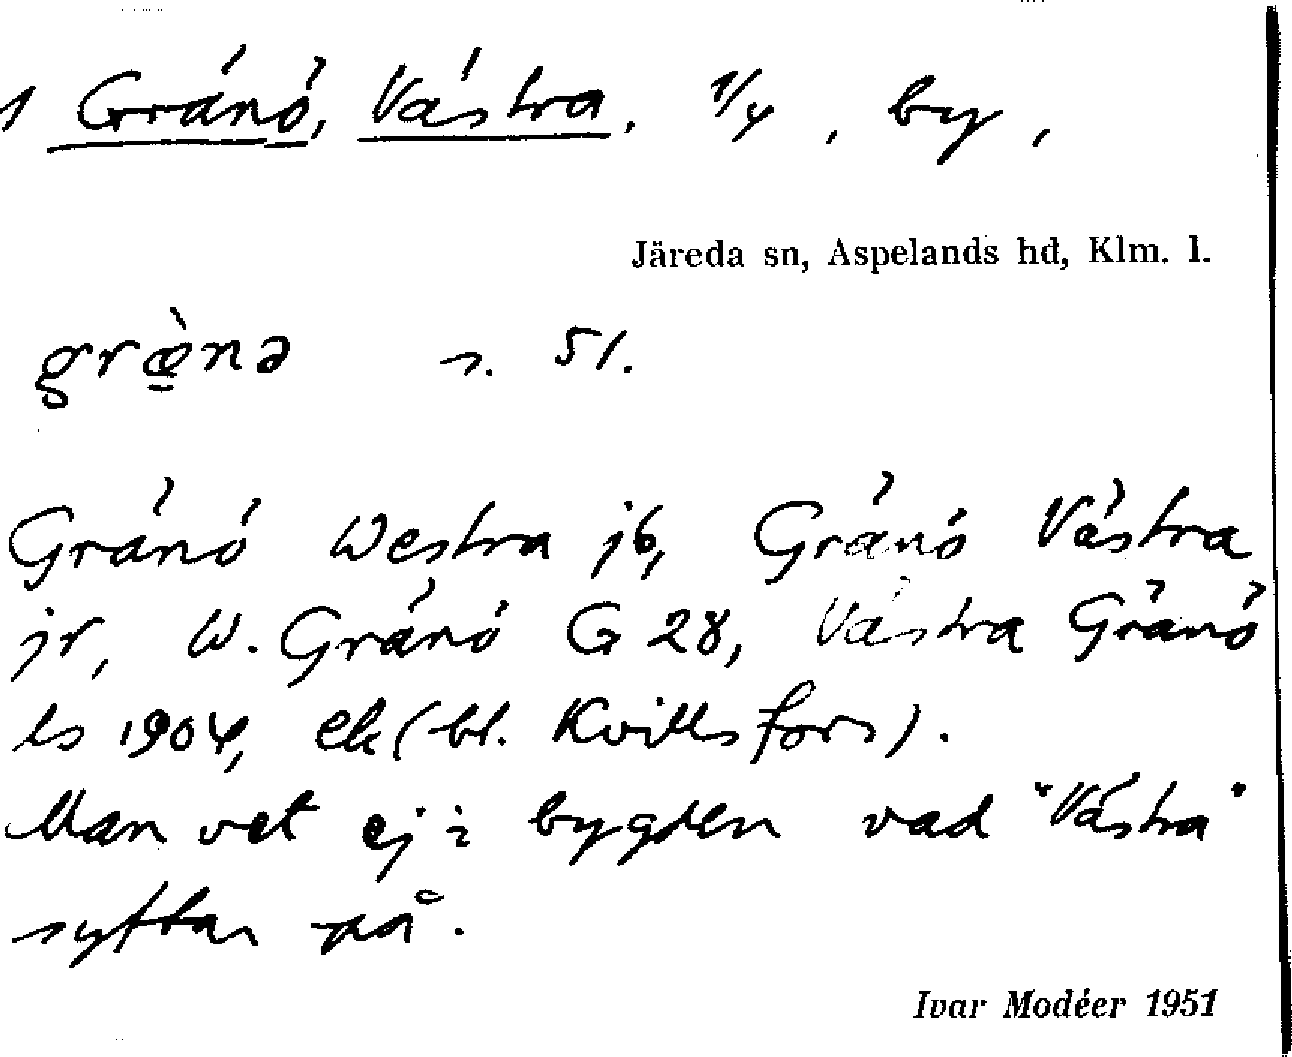 1 Gränö, Västra. 1/4, by,
Järeda sn, Aspelands hd, Klm. l.
græ̀nə s. 51.
Gränö Westra jb, Gränö Västra
jr, W. Gränö G 28, Västra Gränö
ls 1904, ek (bl. Kvillsfors).
Man vet ej i bygden vad "Västra"
syftar på.
Ivar Modéer 1951